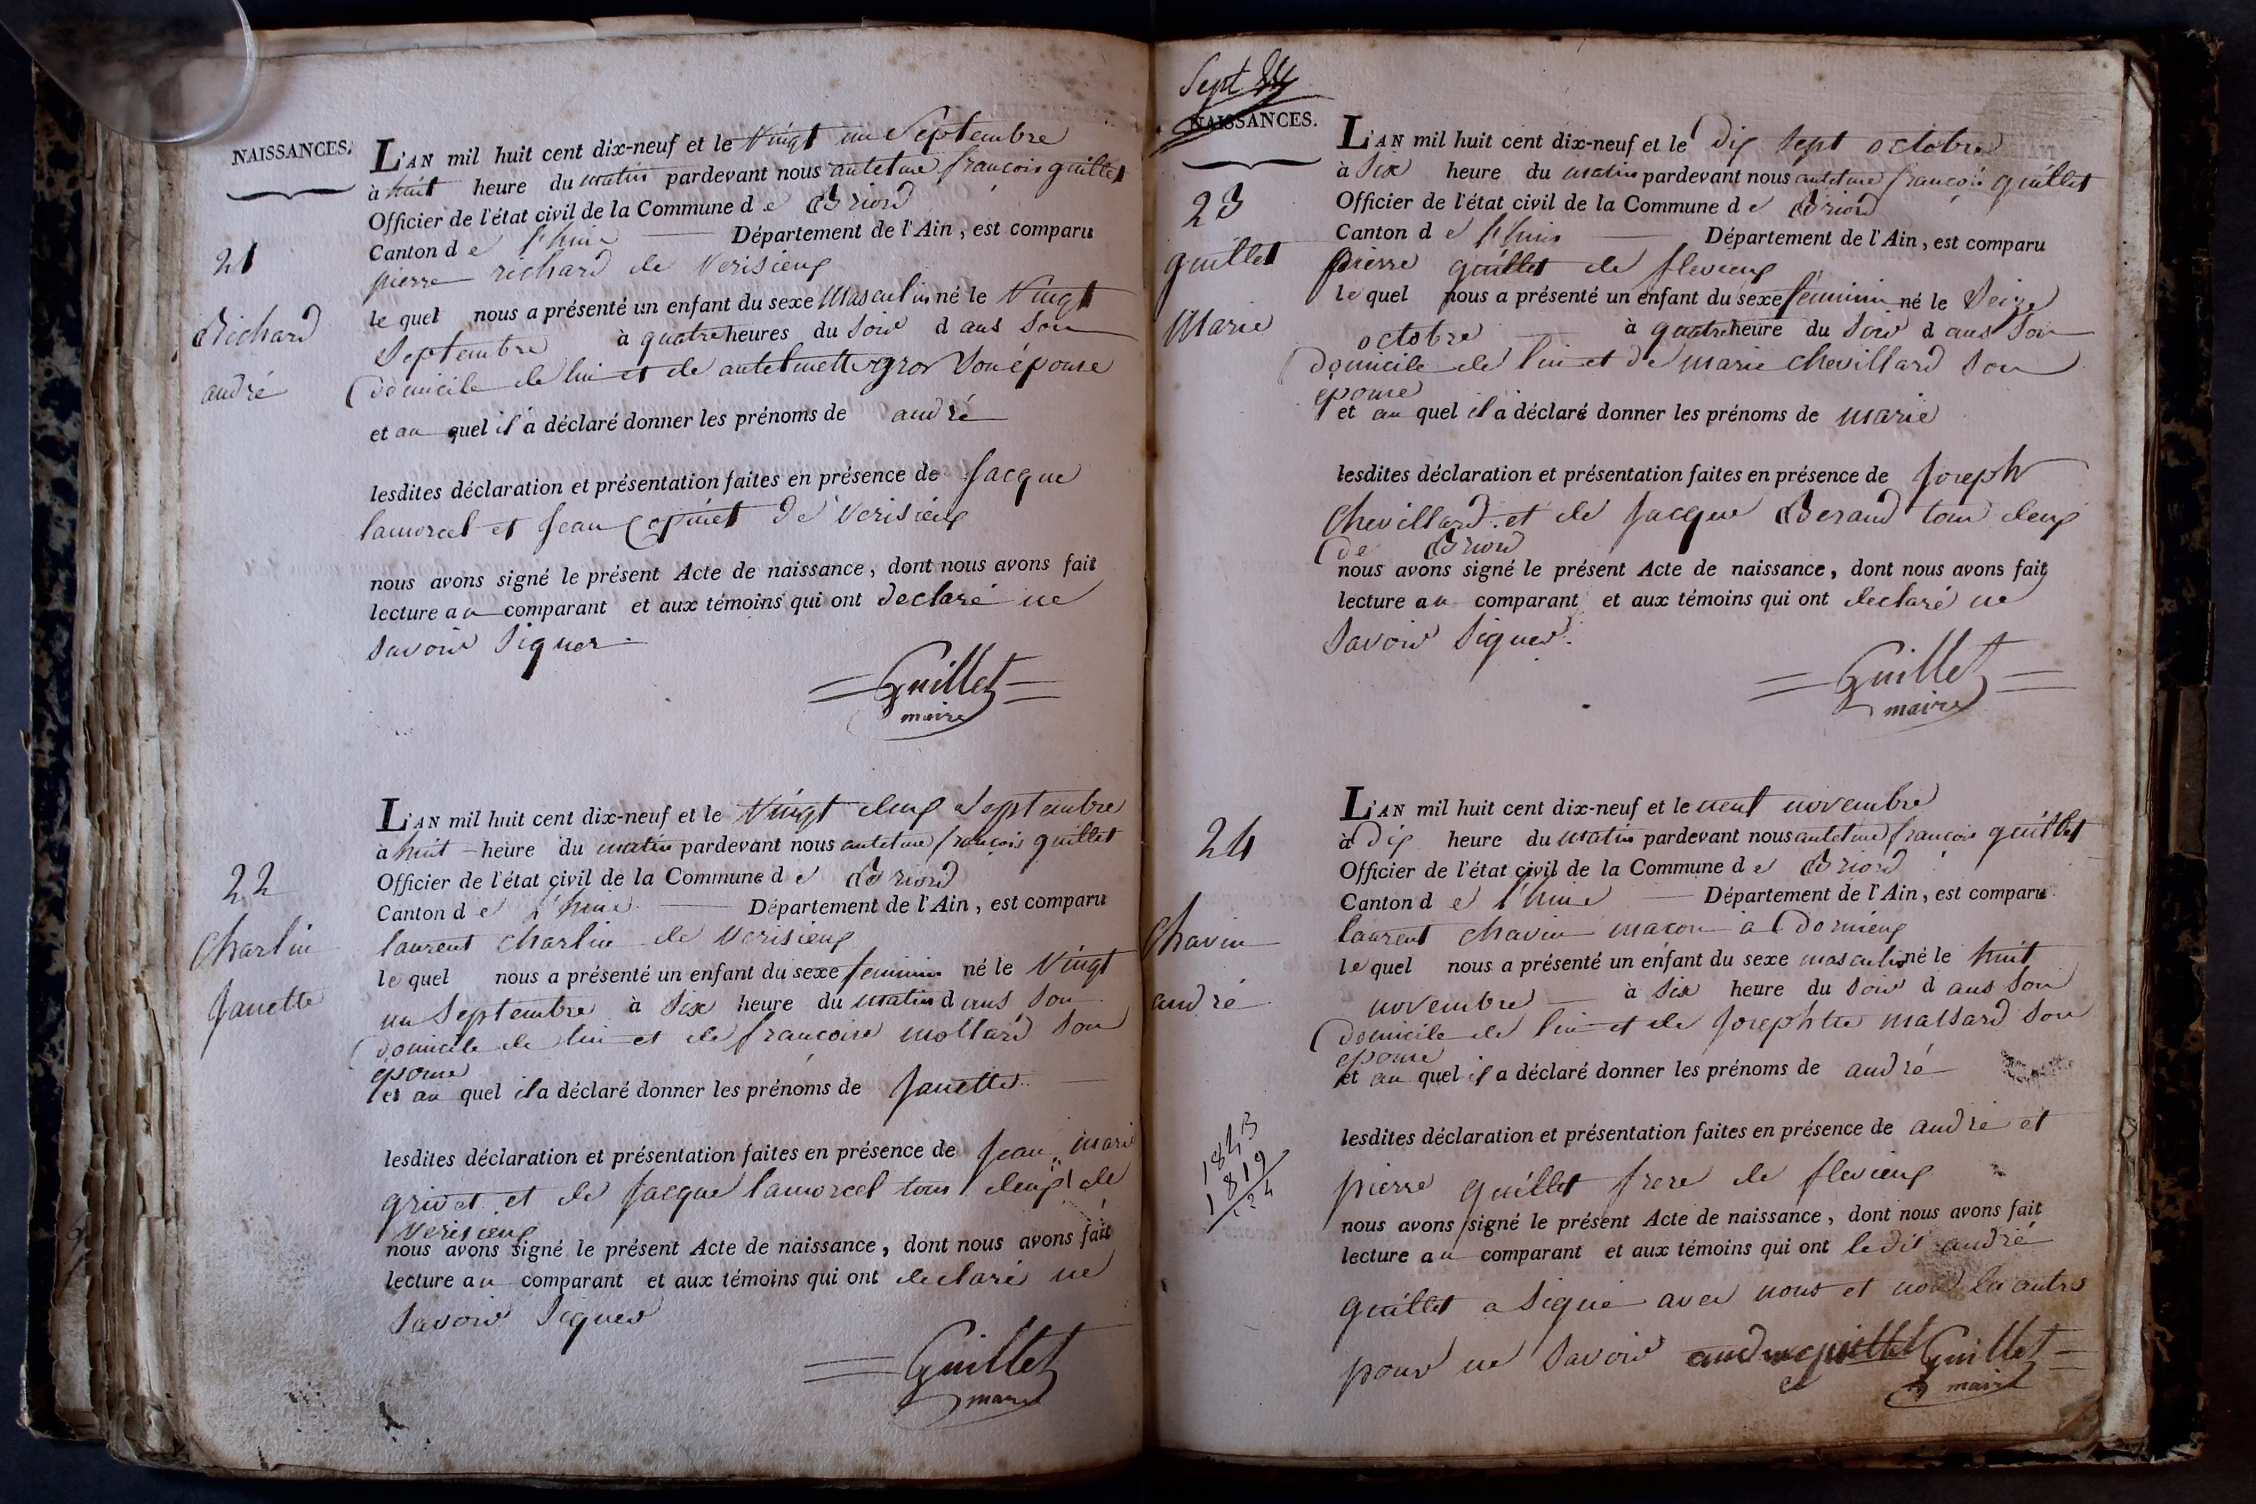 NAISSANCES.
L'AN mil huit cent dix-neuf et le Vingt un Septembre
à huit heure du matin pardevant nous antelme françois guillet
Officier de l'état civil de la Commune de Briord
Canton de l'huis Département de l'Ain, est comparu
21
pierre richard de Verisieux
le quel nous a présenté un enfant du sexe Masculin né le Vingt
Richard
Septembre à quatre heures du soir dans son
andré
domicile de lui et de antelmette gros son épouse
et au quel il a déclaré donner les prénoms de andré
lesdites déclaration et présentation faites en présence de Jacque
lamorcel et Jean de Verisieux
nous avons signé le présent Acte de naissance, dont nous avons fait
lecture au comparant et aux témoins qui ont declaré ne
savoir signer
Guillet
maire
L'AN mil huit cent dix-neuf et le Vingt deux Septembre
à huit heure du matin pardevant nous antelme françois guillet
Officier de l'état civil de la Commune de Briord
22
Canton de l'huis Département de l'Ain, est comparu
Charlin
laurent charlin de Verisieux
le quel nous a présenté un enfant du sexe feminin né le Vingt
Janette
un Septembre à six heure du matin dans son
domicile de lui et de francoise mollard son
epouse
et au quel il a déclaré donner les prénoms de Janette
lesdites déclaration et présentation faites en présence de Jean marie
grivet et de Jacque lamorcel tous deux de
Verisieux
nous avons signé le présent Acte de naissance, dont nous avons fait
lecture au comparant et aux témoins qui ont declaré ne
savoir signer
Guillet
maire
Sept
NAISSANCES.
L'AN mil huit cent dix-neuf et le dix sept octobre
à six heure du matin pardevant nous antelme françois guillet
23
Officier de l'état civil de la Commune de Briord
Canton de l'huis Département de l'Ain, est comparu
guillet
pierre guillet de flevieux
le quel nous a présenté un enfant du sexe feminin né le seize
Marie
octobre à quatre heure du soir dans son
domicile de lui et de marie chevillard son
epouse
et au quel il a déclaré donner les prénoms de marie
lesdites déclaration et présentation faites en présence de Joseph
Chevillard et de Jacque Beraud tous deux
de Briord
nous avons signé le présent Acte de naissance, dont nous avons fait
lecture au comparant et aux témoins qui ont declaré ne
savoir signer.
Guillet
maire
L'AN mil huit cent dix-neuf et le neuf novembre
24
à dix heure du matin pardevant nous antelme françois guillet
Officier de l'état civil de la Commune de Briord
Canton de l'huis Département de l'Ain, est comparu
Chavin
laurent chavin macon à Dornieux
le quel nous a présenté un enfant du sexe masculin né le huit
andré
novembre à six heure du soir dans son
domicile de lui et de Josephte malsard son
epouse
et au quel il a déclaré donner les prénoms de andré
lesdites déclaration et présentation faites en présence de andré et
1843
1819
24
pierre guillet frere de flevieux
nous avons signé le présent Acte de naissance, dont nous avons fait
lecture au comparant et aux témoins qui ont ledit andré
guillet a signé avec nous et non les autres
pour ne savoir andre guillet Guillet
maire